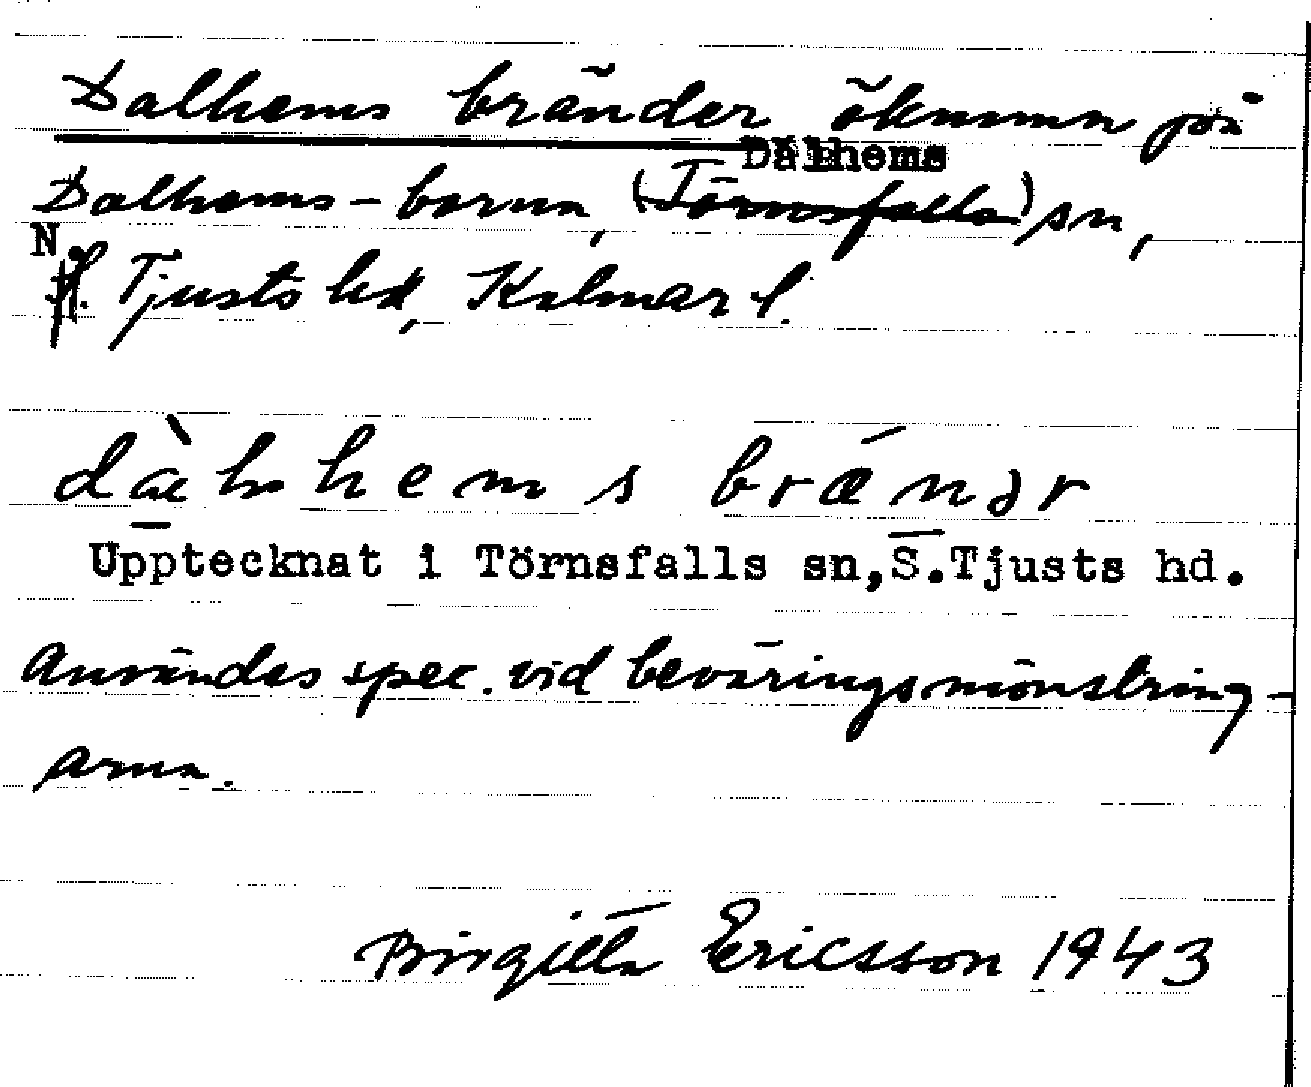 Dalhems bränder öknamn på
Dalhems
Dalhems-borna, (Törnsfalla) sn,
N.
Tjusts hd, Kalmar l.
dæ̀hems brǽnər
Upptecknat i Törnsfalls sn, S.Tjusts hd.
Användes spec. vid beväringsmönstring-
arna.
Birgitta Ericsson 1943